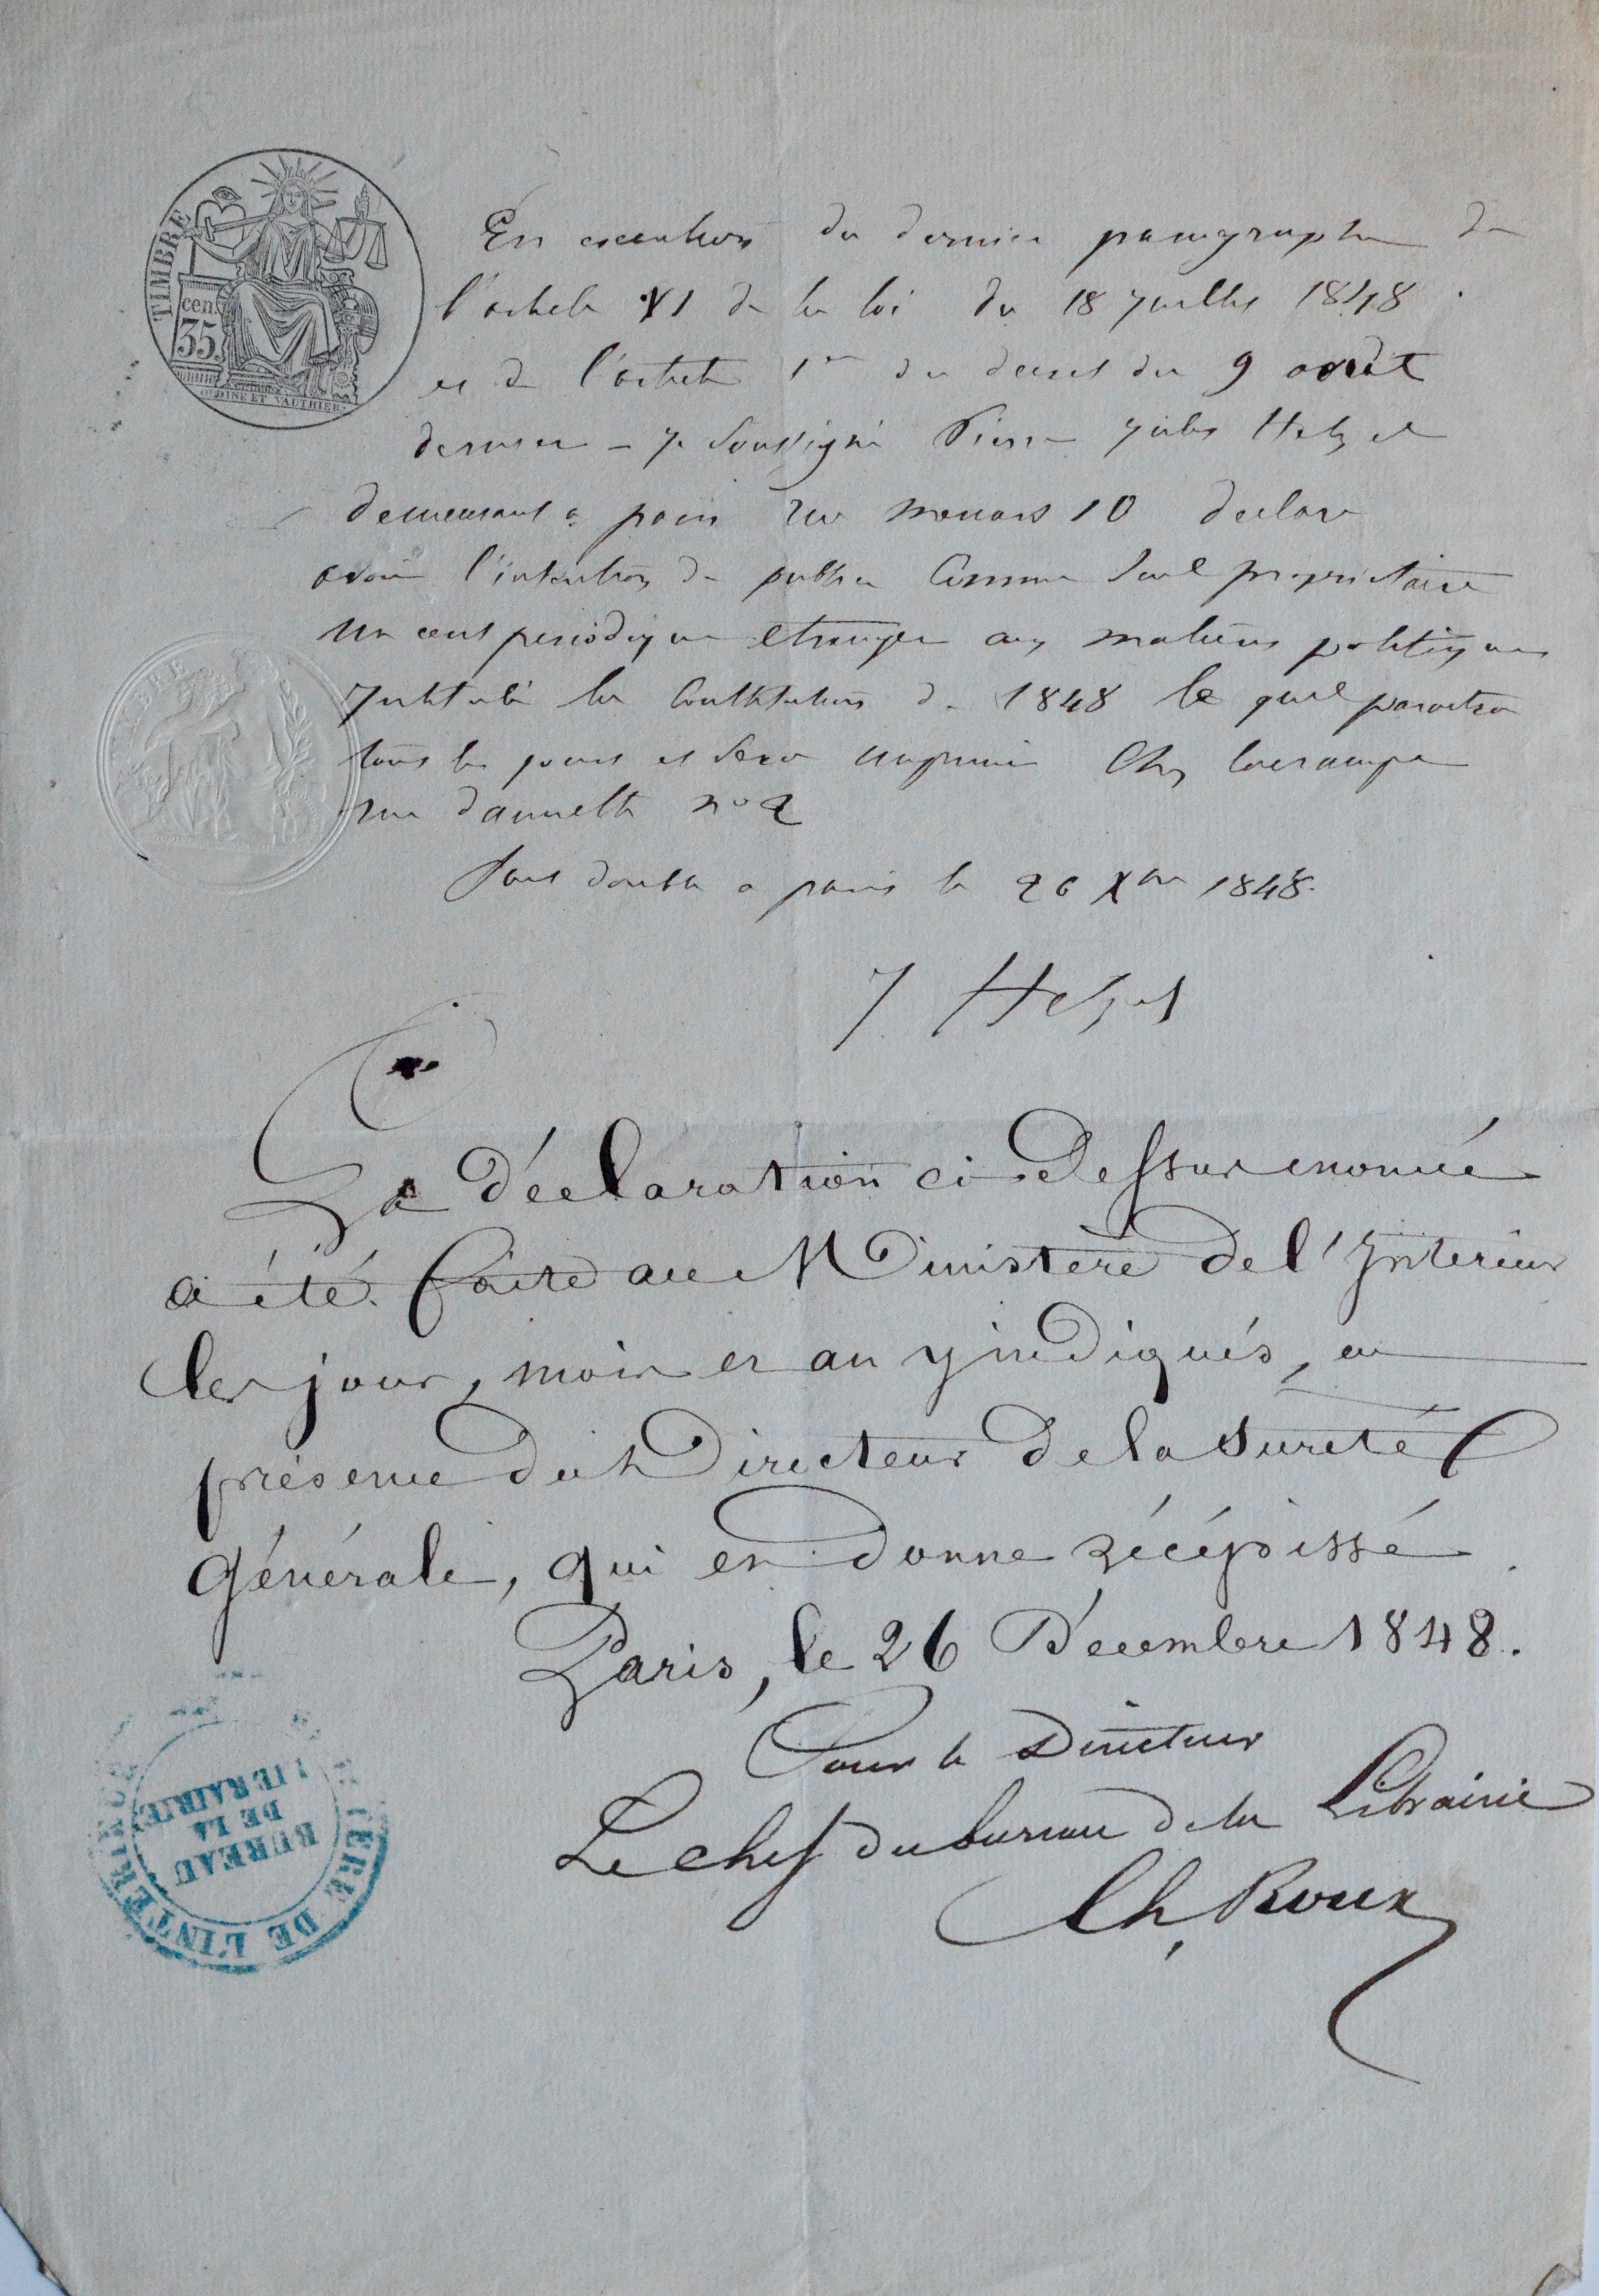 TIMBRE
cen.
35
ET VAUTHIER
En execution du dernier paragraphe de
l'article VI de la loi du 18 Juillet 1848
et de l'article 1er du decret du 9 aout
dernier – Je Soussigné Pierre Jules Hetzel
demeurant a paris rue menars 10 declare
avoir l'intention de publier Comme Seul proprietaire
un ecrit periodique etranger aux matieres politiques
Intitulé la Constitution de 1848 le quel paraitra
tous les jours et Sera imprimé Chez Lacrampe
rue damiette no 2
fait double a paris le 26 Xbre 1848.
J Hetzel
La déclaration ci-dessus enoncée
a été faite au Ministère de l'Intérieur
les jour, mois et an y indiqués, en
présence du Directeur de la sureté
générale, qui en donne récépissé.
Paris, le 26 Décembre 1848.
Pour le Directeur
Le chef du bureau de la Librairie
Ch, Roux
DE L'INTERIEUR
BUREAU
DE LA
LIBRAIRIE